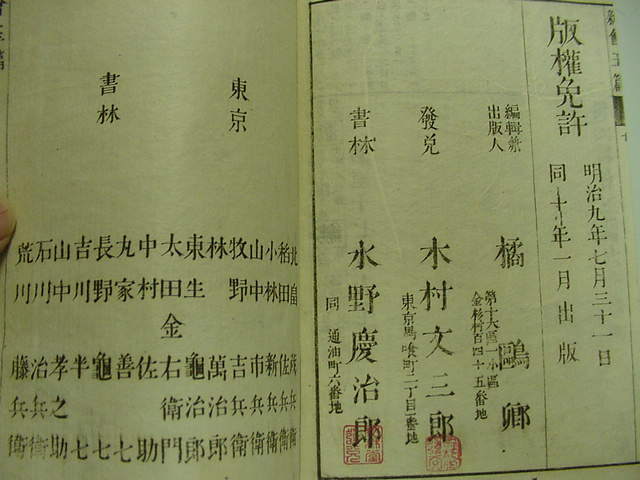 版權免許
明治九年七月三十一日
同十年一月出版
編輯兼
出版人
第十大區一小區
金杉村百四十五番地
橘鷗卿
發兌
東京馬喰町二丁目番地
木村文三郎
書林
同通油町六番地
水野慶治郎
東京
書林
北畠茂兵衛
稻田佐兵衛
小林新兵衛
山中市兵衛
牧野吉兵衛
林萬治郎
東生龜治郎
太田金右衛門
中村佐助
丸家善七
長野龜七
吉川半七
山中孝之助
石川治兵衛
荒川藤兵衛